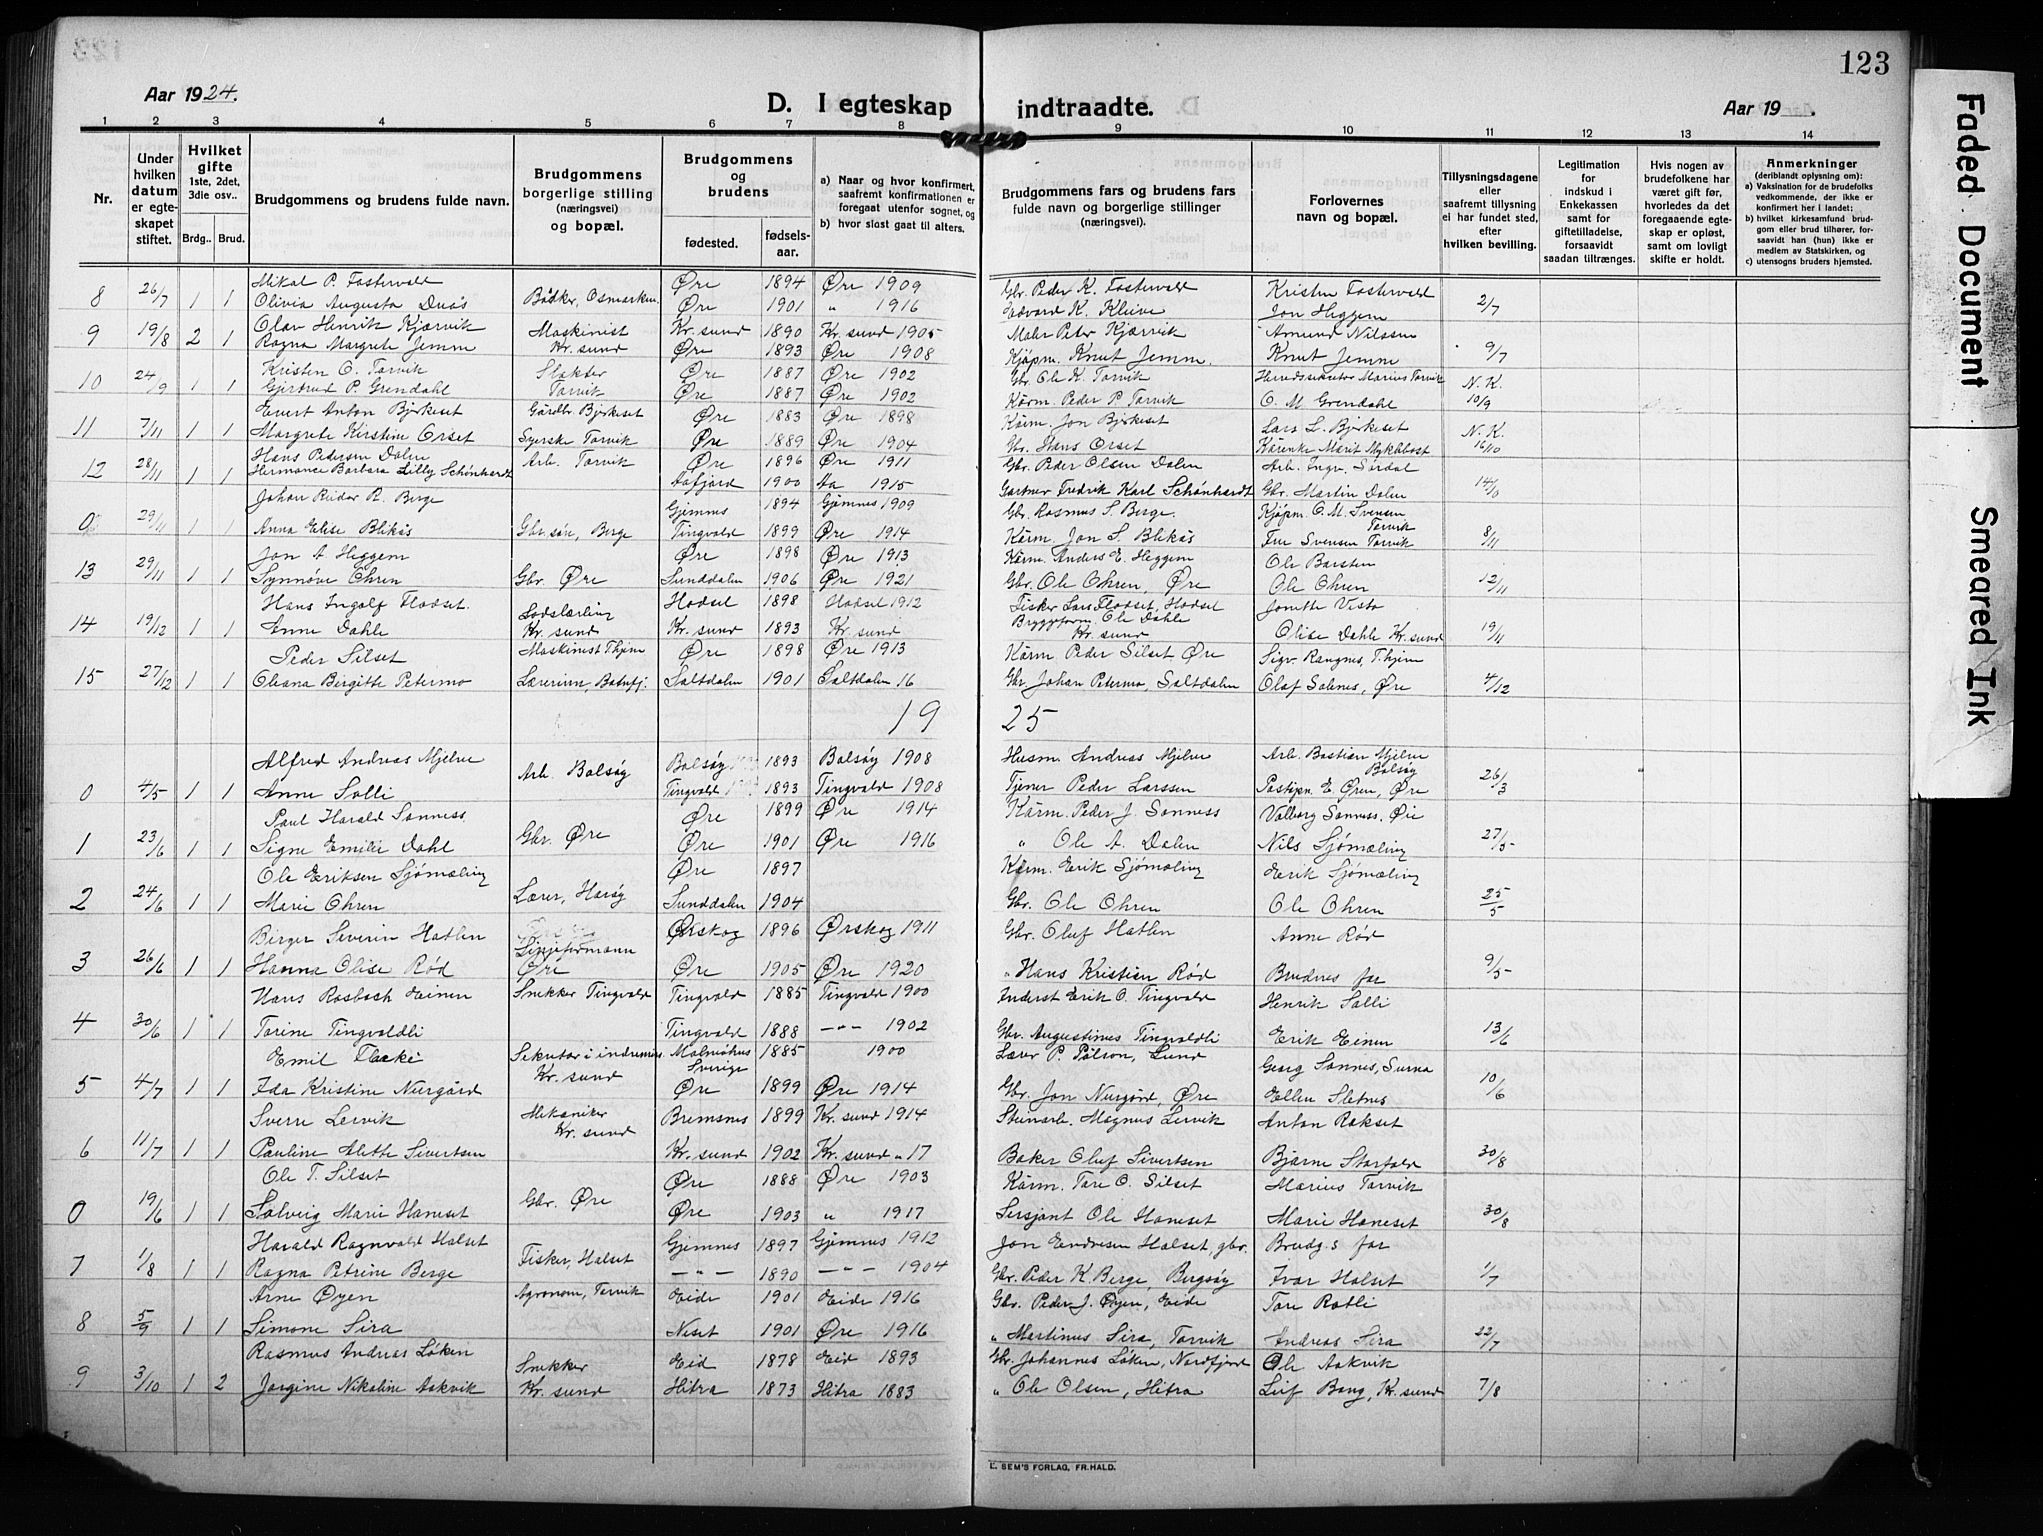 123
Aar 1924.
D. I egteskap indtraadte.
Aar 19
Faded Document
Smeared Ink
1 2 3 4 5 6 7 8 9 10 11 12 13 14
Nr.
Under hvilken datum er egteskapet stiftet.
Hvilket gifte 1ste, 2det, 3die osv..
Brdg.. Brud.
Brudgommens og brudens fulde navn.
Brudgommens borgerlige stilling (næringsvei) og bopæl.
Brudgommens og brudens
fødested. fødselsaar.
a) Naar og hvor konfirmert, saafremt konfirmationen er foregaat utenfor sognet, og
b) hvor sidst gaat til alters.
Brudgommens fars og brudens fars fulde navn og borgerlige stillinger (næringsvei).
Forlovernes navn og bopæl.
Tillysningsdagene eller saafremt tillysning ei har fundet sted, efter hvilken bevilling.
Legitimation for indskud i Enkekassen samt for giftetilladelse, forsaavidt saadan tiltrænges.
Hvis nogen av brudefolkene har været gift før, hvorledes da det foregaaende egteskap er opløst, samt om lovligt skifte er holdt.
Anmerkninger (deriblandt oplysning om):
a) Vaksination for de brudefolks vedkommende, der ikke er konfirmert her i landet;
b) hvilket kirkesamfund brudgom eller brud tilhører, forsaavidt han (hun) ikke er medlem av Statskirken, og
c) utensogns bruders hjemsted.
Mikal P. Fostervold Øre 1894 Øre 1909 Gbr. Peder K. Fostervold Kristen Fostervold
8 26/7 1 1 Olivia Augusta Duås Bødker, Osmarken Øre 1901 " 1916 Edvard K. Kleive Jon Heggem 2/7
Olav Henrik Kjærvik Maskinist Kr. sund 1890 Kr. sund 1905 Maler Peter Kjærvik Amund Nilssen
9 19/8 2 1 Ragna Margrete Jemne Kr. sund Øre 1893 Øre 1908 Kjøpm. Knut Jemne. Knut Jemne 9/7
Kristen O. Torvik Slakter Øre 1887 Øre 1902 Gbr. Ole K. Torvik Herredssekretær Marius Torvik N. K.
10 24/9 1 1 Gjertrud P. Grendahl Torvik Øre 1887 Øre 1902 Kårm. Peder P. Torvik O. M. Grendahl 10/9
Evert Anton Bjerkeset Gårdbr. Bjerkeset Øre 1883 Øre 1898 Kårm. Jon Bjerkeset Lars L. Bjerkeset
11 7/11 1 1 Margrete Kirstine Orset Syerske Torvik Øre 1889 Øre 1904 Gbr. Hans Orset Kårenke Marit Myklebost N. K. 16/10
Hans Pedersen Dalen Arb. Torvik Øre 1896 Øre 1911 Gbr. Peder Olsen Dalen Arb. Ingv. Sørdal
12 28/11 1 1 Hermance Barbara Lilly Schönhardt Aafjord 1900 Aa 1915 Gartner Fredrik Karl Schönhardt Gbr. Martin Dalen 14/
Johan Peder R. Berge Gjemnes 1894 Gjemnes 1909 Gbr. Rasmus S. Berge. Kjøpm. O. M. Svensen Torvik
0 29/11 1 1 Anna Elise Blikås Gbr. søn, Berge Tingvold 1899 Øre 1914 Kårm. Jon S. Blikås Fru Svensen Torvik 8/11
Jon A. Heggem Øre 1898 Øre 1913 Kårm. Anders E. Heggem Ole Barsten
13 29/11 1 1 Synnøve Ohren Gbr. Øre Sunddalen 1906 Øre 1921 Gbr. Ole Ohren, Øre Ole Ohren 12/11
Hans Ingolf Flodset. Lodslærling Hadsel 1898 Hadsel 1912 Fisker Lars Flodset, Hadsel
14 19/12 1 1 Anne Dahle Kr. sund Kr. sund 1893 Kr. sund Bryggeform. Ole Dahle Kr. sund Olise Dahle Kr. sund 19/11
Peder Silset Maskinist Thjem Øre 1898 Øre 1913 Kårm. Peder Silset Øre Sigv. Rangnes, Thjem
15 27/12 1 1 Oleana Bergitte Petermo Lærerinne, Batnfj. Saltdalen 1901 Saltdalen 16 Gbr. Johan Petermo, Saltdalen Olaf Solnes, Øre 4/12
19 25
Alfred Andreas Mjelve Bolsøy 1893 Bolsøy 1908 Husm. Andreas Mjelve Arb. Bastian Mjelve Bolsøy
0 4/5 1 1 Anne Solli Arb. Bolsøy Tingvold 1893 Tingvold 1908 Tjener Peder Larssen Postkpn. E. Øren, Øre 26/3
Paul Harald Sonness. Øre 1899 Øre 1914 Kårm. Peder J. Sonness Valborg Sonness. Øre
1 23/6 1 1 Signe Emilie Dahl Gbr. Øre Øre 1901 Øre 1916 " Ole A. Dalen Nils Sjømæling 27/5
Ole Eriksen Sjømæling Øre 1897 Kårm. Erik Sjömæling Erik Sjömæling
2 24/6 1 1 Marie Ohren Lærer, Harøy Sunddalen 1904 Gbr. Ole Ohren Ole Ohren 25/5
Birger Severin Hatlen Linjeformann Ørskog 1896 Ørskog 1911 Gbr. Oluf Hatlen Anne Rød
3 26/6 1 1 Hanna Olise Rød Øre Øre 1905 Øre 1920 " Hans Kristian Rød Brudens far 9/5
Hans Rosbach Einen Snekker Tingvold Tingvold 1885 Tingvold 1900 Inderst Erik O. Tingvold Henrik Solli
4 30/6 1 1 Torine Tingvoldli Tingvold 1888 —"— 1902 Gbr. Augustinus Tingvoldli Erik Einen 13/6
Emil Flacke Sekretær i indremis. Malmöhus Sverige 1885 1900 Lærer P. Pålson, Lund Georg Sonnes, Surna
5 4/7 1 1 Ida Kristine Nergård Kr. sund Øre 1899 Øre 1914 Gbr. Jon Nergård, Øre Ellen Sletnes 10/6
Sverre Lervik Mekaniker Bremsnes 1899 Kr. sund 1914 Stenarb. Magnus Lervik Anton Rokset
6 11/7 1 1 Pauline Alette Sivertsen Kr. sund Kr. sund 1902 Kr. sund " 17 Baker Oluf Sivertsen Bjarne Storfold 30/8
Ole T. Silset Øre 1888 Øre 1903 Kårm. Tore O. Silset Marius Torvik
0 19/6 1 1 Solveig Marie Haneset Gbr. Øre Øre 1903 " 1917 Sersjant Ole Haneset Marie Haneset 30/8
Harald Ragnvald Halset Gjemnes 1897 Gjemnes 1912 Jon Endresen Halset, gbr. Brudg.s far
7 1/8 1 1 Ragna Petrine Berge Fisker, Halset —"— 1890 —"— 1904 Gbr. Peder K. Berge, Bergsøy Ivar Halset 1/7
Arne Øyen Agronom, Torvik Eide 1901 Eide 1916 Gbr. Peder J. Øyen, Eide Tore Rotli
8 5/9 1 1 Simone Sira Neset 1901 Øre 1916 " Martinus Sira, Torvik Andreas Sira 22/7
Rasmus Andreas Løken Snekker Eid 1878 Eid 1893 Gbr. Johannes Løken, Nordfjord Ole Aakvik
9 3/10 1 2 Jorgine Nikoline Aakvik Kr. sund Hitra 1873 Hitra 1883 " Ole Olsen, Hitra Leif Bang, Kr. sund 7/8
E. SEM'S FORLAG, FR.HALD.